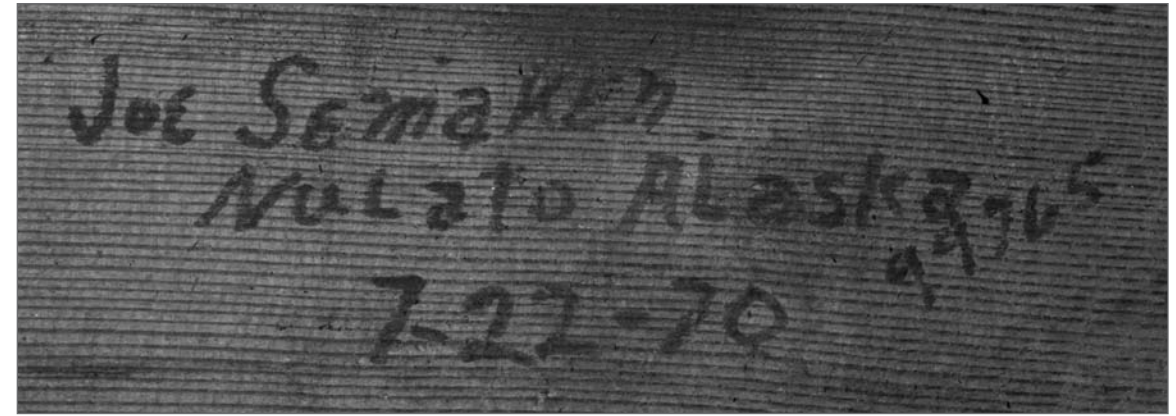 Joe Semaken
Nulato Alaska 99765
7-22-70